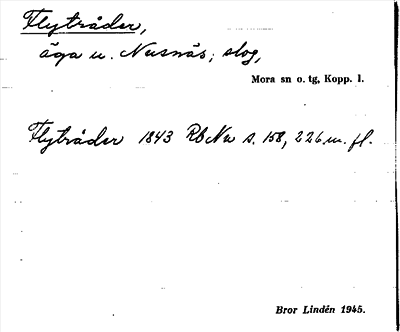 Flyträder,
äga u. Nusnäs; slog,
Mora sn o. tg, Kopp. l.
Flyträder 1843 Rb Nu s. 158, 226 m. fl.
Bror Lindén 1945.